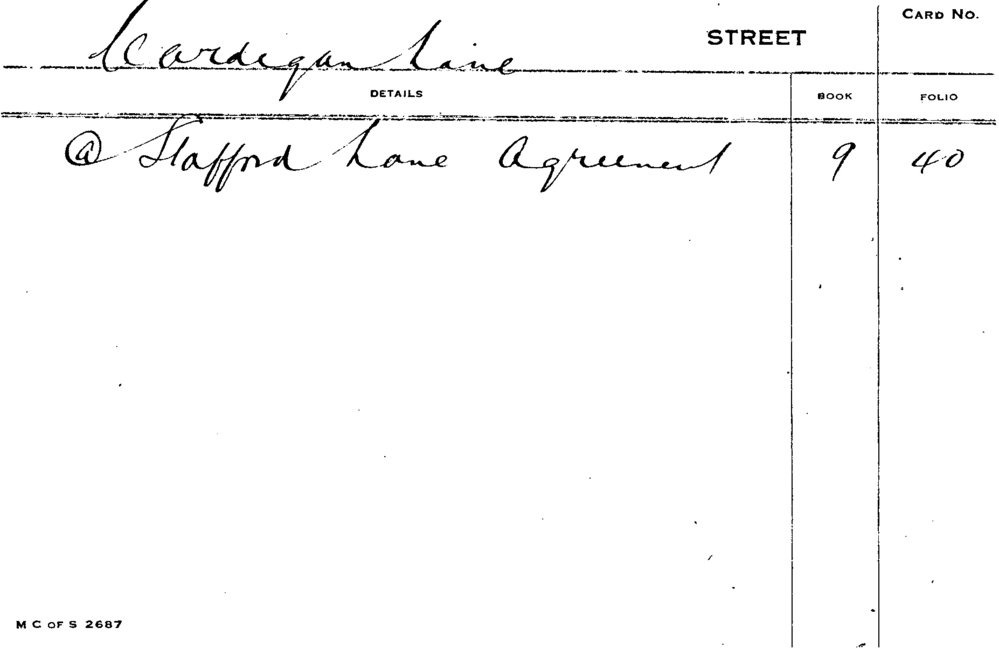 CARD NO.
Cardigan Lane STREET
DETAILS BOOK FOLIO
@ Stafford Lane Agreement 9 40
M C OF S 2687